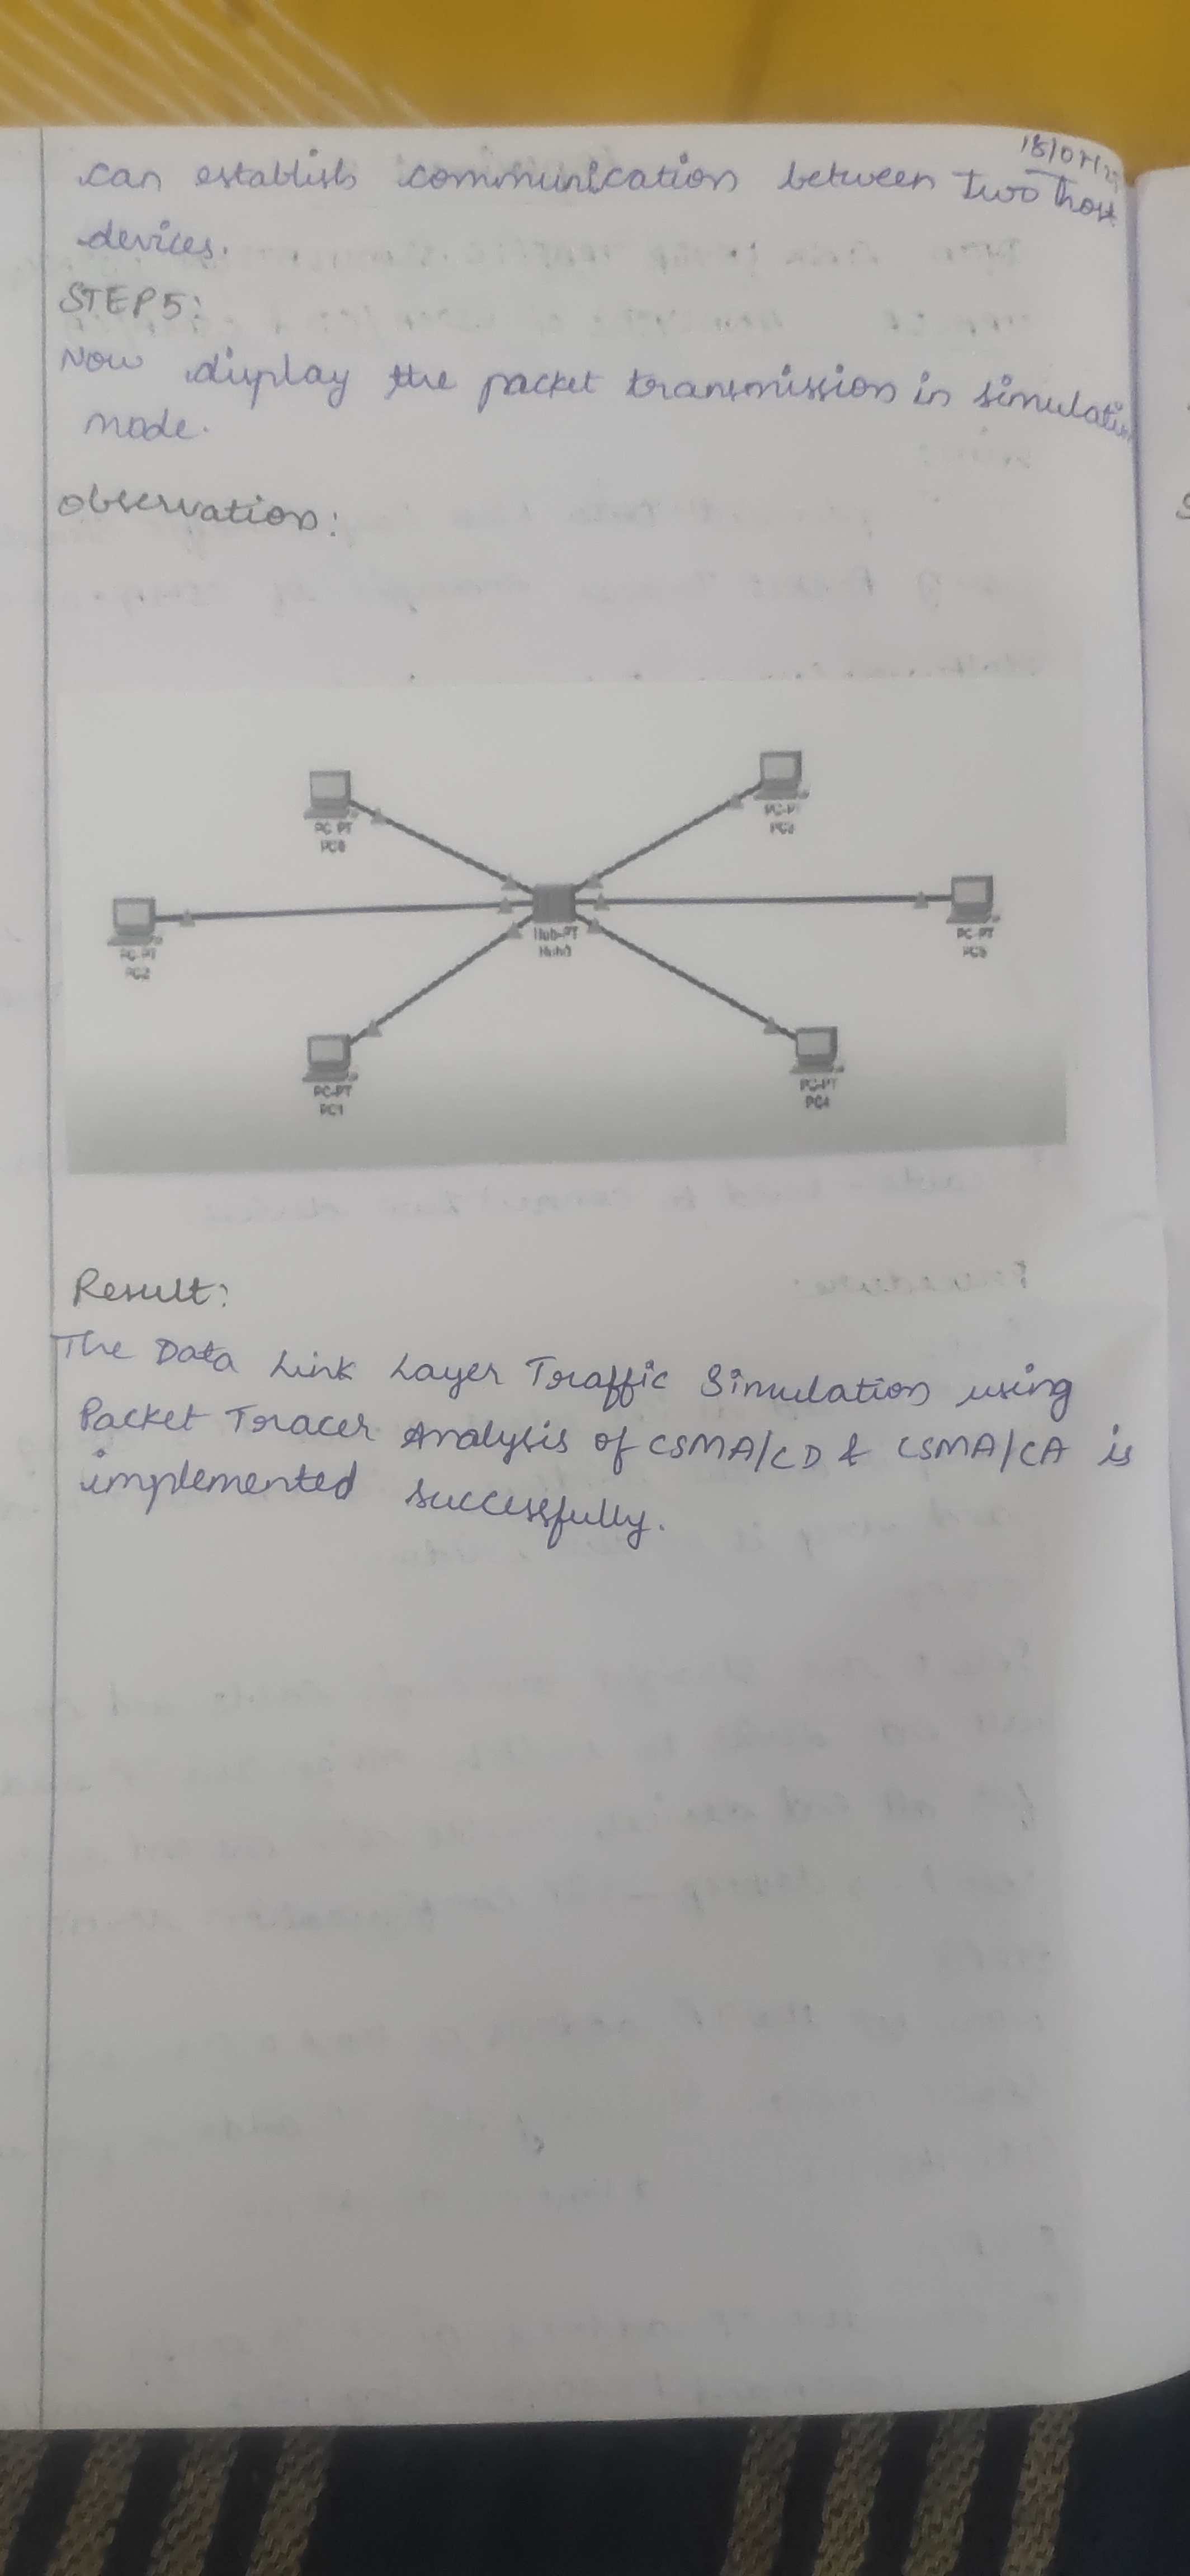 can establish communication between two host
devices.
STEP5:
Now display the packet transmission in simulation
mode.
Observation:
PC-PT
PC-PT
PC-PT
PC2
Hub-PT
Hub0
PC-PT
PC-PT
PC1
PC-PT
PC4
Result:
The Data Link Layer Traffic Simulation using
Packet Tracer Analysis of CSMA/CD & CSMA/CA is
implemented successfully.